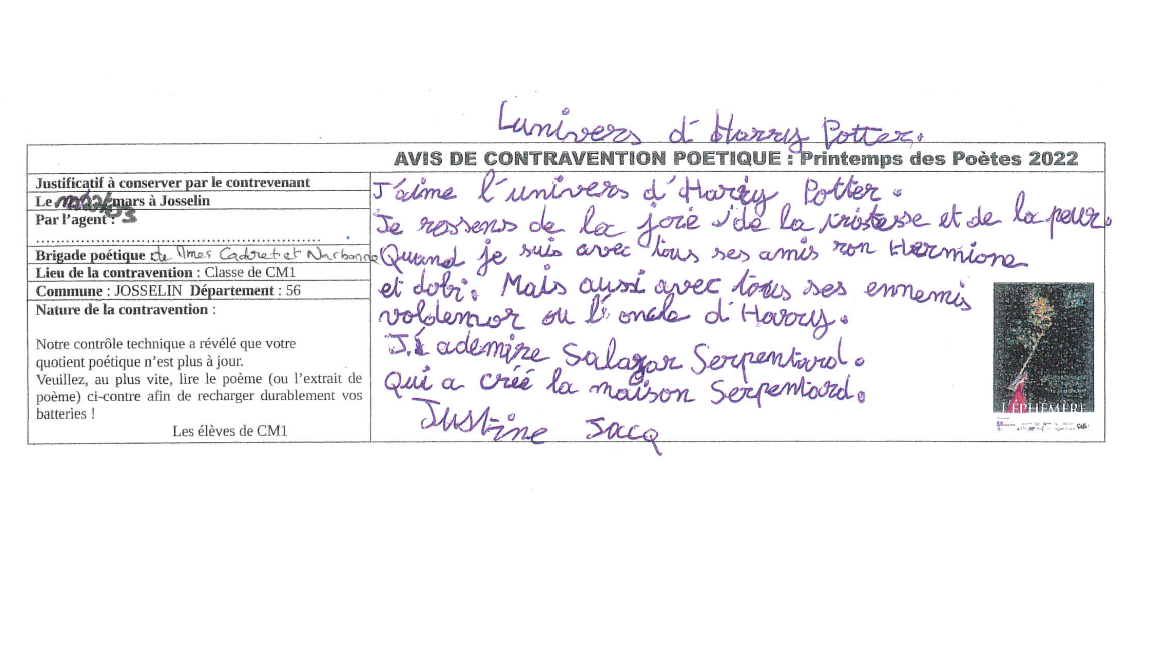 Lunivers d'Harry Potter.
AVIS DE CONTRAVENTION POETIQUE : Printemps des Poètes 2022
Justificatif à conserver par le contrevenant
Le mars à Josselin
Par l'agent :
Brigade poétique de Mmes Cadret et Narbonne
Lieu de la contravention : Classe de CM1
Commune : JOSSELIN Département : 56
Nature de la contravention :
Notre contrôle technique a révélé que votre
quotient poétique n'est plus à jour.
Veuillez, au plus vite, lire le poème (ou l'extrait de
poème) ci-contre afin de recharger durablement vos
batteries !
Les élèves de CM1
J'aime l'univers d'Harry Potter.
Je ressens de la joie, de la tristesse et de la peur.
Quand je suis avec tous ses amis ron Hermione
et dobi. Mais aussi avec tous ses ennemis
voldemor ou l'oncle d'Harry.
J'ademire Salazar Serpentard.
Qui a créé la maison Serpentard.
Justine Jacq
L'ÉPHÉMÈRE